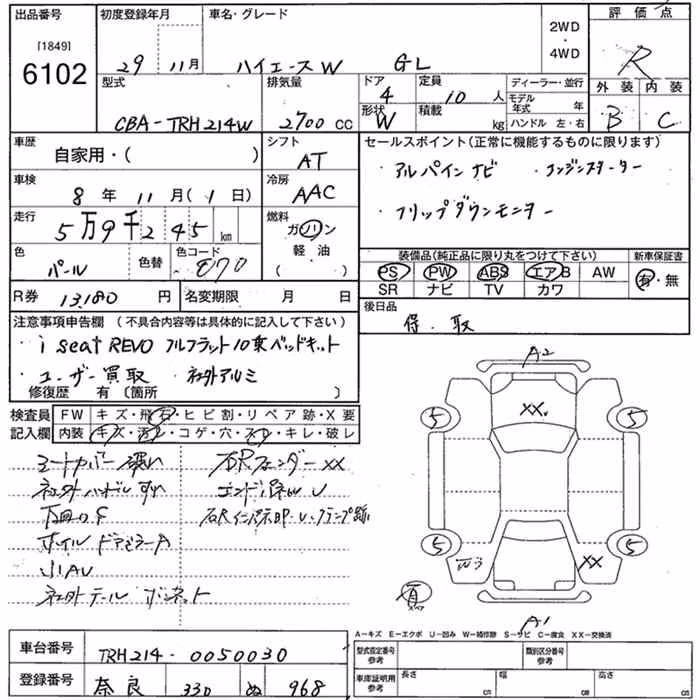 出品番号 初度登録年月 車名・グレード 評価点
[1849]
6102
29 11月 ハイエースW GL
2WD
・
4WD
R
型式 排気量 ドア 定員 ディーラー・並行 外装 内装
4 10人 モデル年式 年
CBA-TRH214W 2700 CC 形状 W 積載 kg ハンドル 左・右 B C
車歴 シフト セールスポイント(正常に機能するものに限ります)
自家用・( ) AT
アルパインナビ エンジンスターター
車検 冷房
8年 11月(1日) AAC
フリップダウンモニター
走行 燃料
5万9千245km ガソリン
軽油
( )
色 色替 色コード
パール 070
装備品(純正品に限り丸をつけて下さい) 新車保証書
PS PW ABS エアB AW 有・無
SR ナビ TV カワ
R券 13,180円 名変期限 月 日
後日品
保.取
注意事項申告欄 (不具合内容等は具体的に記入して下さい)
・i seat REVO フルフラット10乗ベッドキット
・ユーザー買取 社外アルミ
修復歴 有〔箇所 )
検査員 FW キズ・飛石・ヒビ割・リペア跡・X要
記入欄 内装 キズ・汚れ・コゲ・穴・スレ・キレ・破レ
シートカバー 石Rフェンダー XX
社外ハンドル
ホイル ドアミラーA
小AU
社外テール ボンネット
A2
XX
5 5
5 5
XX
A1
A-キズ E-エクボ U-凹み W-補修跡 S-サビ C-腐食 XX-交換済
車台番号 TRH214-0050030
型式指定番号 参考 類別区分番号 参考
登録番号 奈良 330 ぬ 968
車庫証明用 参考 長さ cm 幅 cm 高さ cm